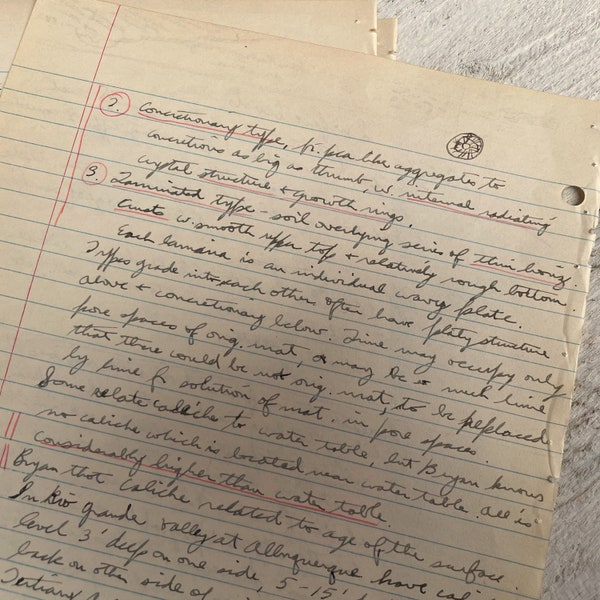 2. Concretionary type, fr. pea like aggregates to
concretions as big as thumb, w. internal radiating
crystal structure + growth rings.
3. Laminated type - soil overlying series of thin, wavy,
crusts w. smooth upper top + relatively rough bottom.
Each lamina is an individual wavy plate.
Types grade into each other, often have platy structure
above + concretionary below. Lime may occupy only
pore spaces of orig. mat, or may be so much lime
that there could be not orig. mat, to be replaced
by lime fr solution of mat. in pore spaces.
Some relate caliche to water table, but Bryan knows
no caliche which is located near water table. All is
considerably higher than water table
Bryan that caliche related to age of the surface.
In Rio Grande valley at Albuquerque have
level 3' deep on one side, 5-15'
back on other side of
Tertiary